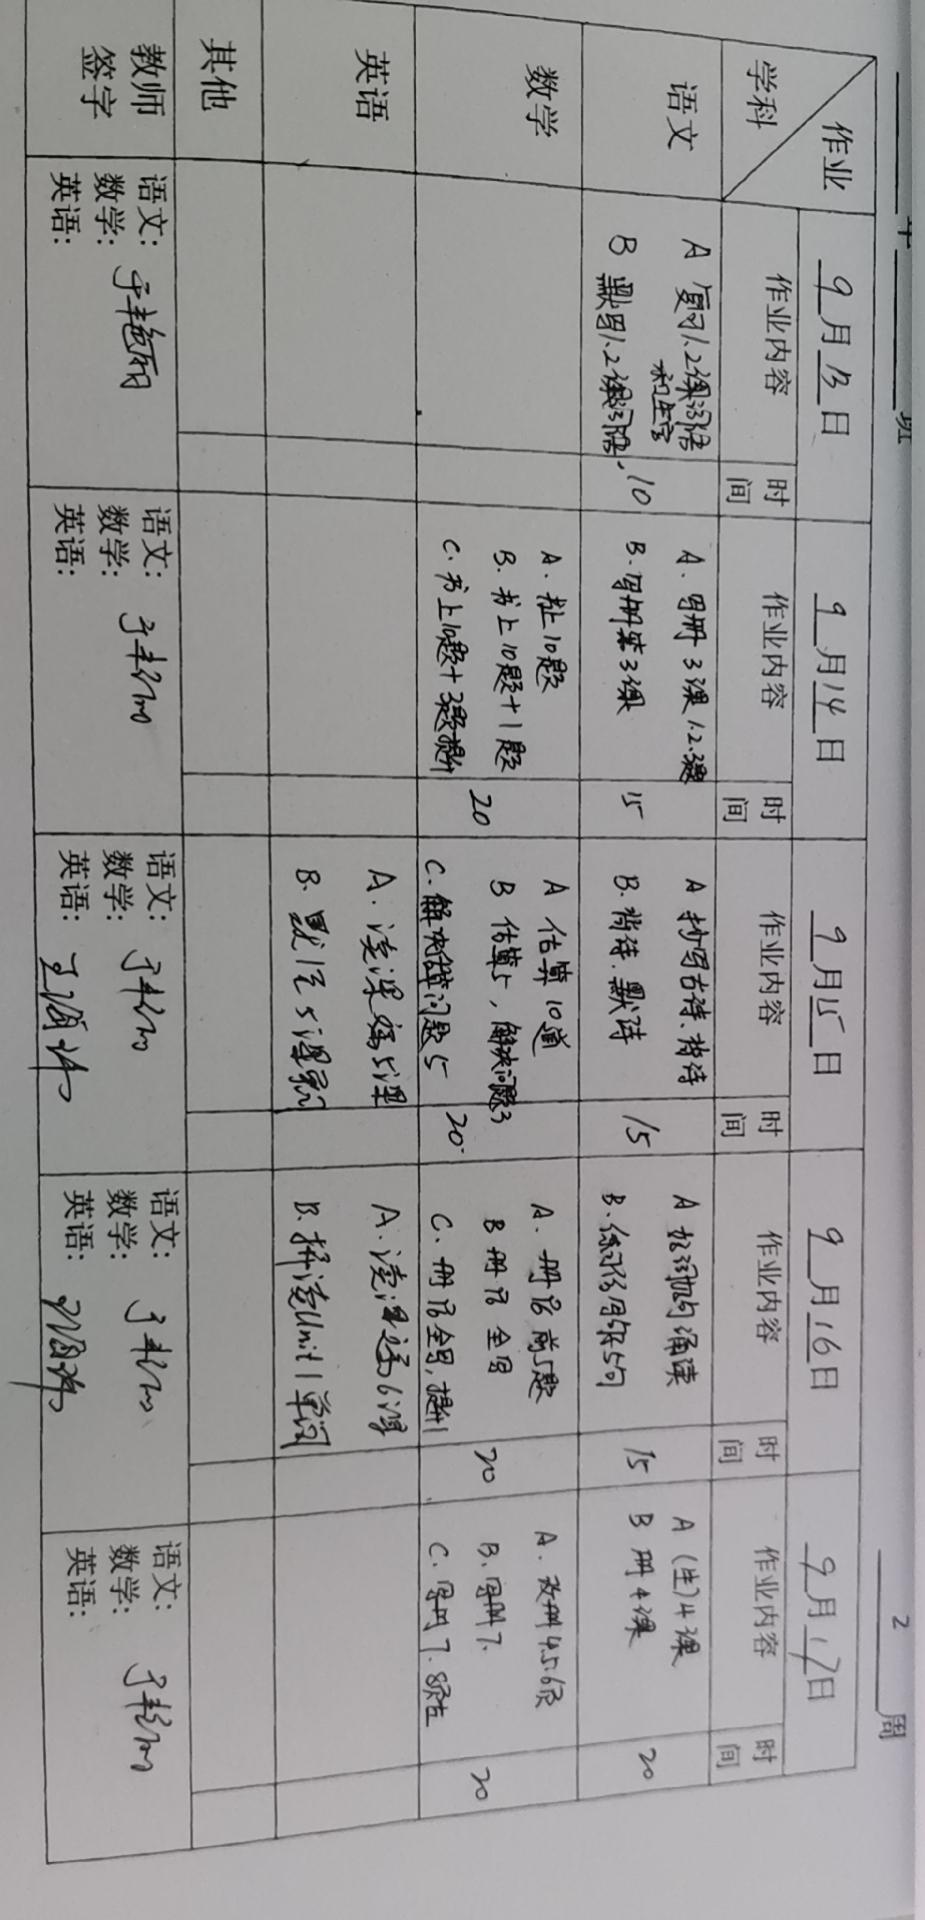 年 班
2 周
作业
学科
9月13日
9月14日
9月15日
9月16日
9月17日
作业内容
时间
作业内容
时间
作业内容
时间
作业内容
时间
作业内容
时间
语文
A 复习1.2课词语
和生字
B 默写1.2课词语.
10
A. 写册3课1.2.3题
B. 写册第3课
15
A 抄写古诗、背诗
B. 背诗.默诗
15
A 好词好句诵读
B. 练习仿写句5句
15
A (生)4课
B 册4课
20
数学
A. 书上10题
B. 书上10题+1题
C. 书上10题+3题提升
20
A 估算10道
B 估算5，解决问题3
C. 解决估算问题5
20.
A. 册P8 前5题
B 册P8 全写
C. 册P8全写,提升1
20
A. 改册4.5.6页
B. 写册7.
C. 写册7.8页
20
英语
A. 读课文5课
B. 默1至5课词
A. 读课文6课
B. 拼读Unit 1单词
其他
教师
签字
语文:
数学:
英语:
语文:
数学:
英语:
语文:
数学:
英语:
语文:
数学:
英语:
语文:
数学:
英语: